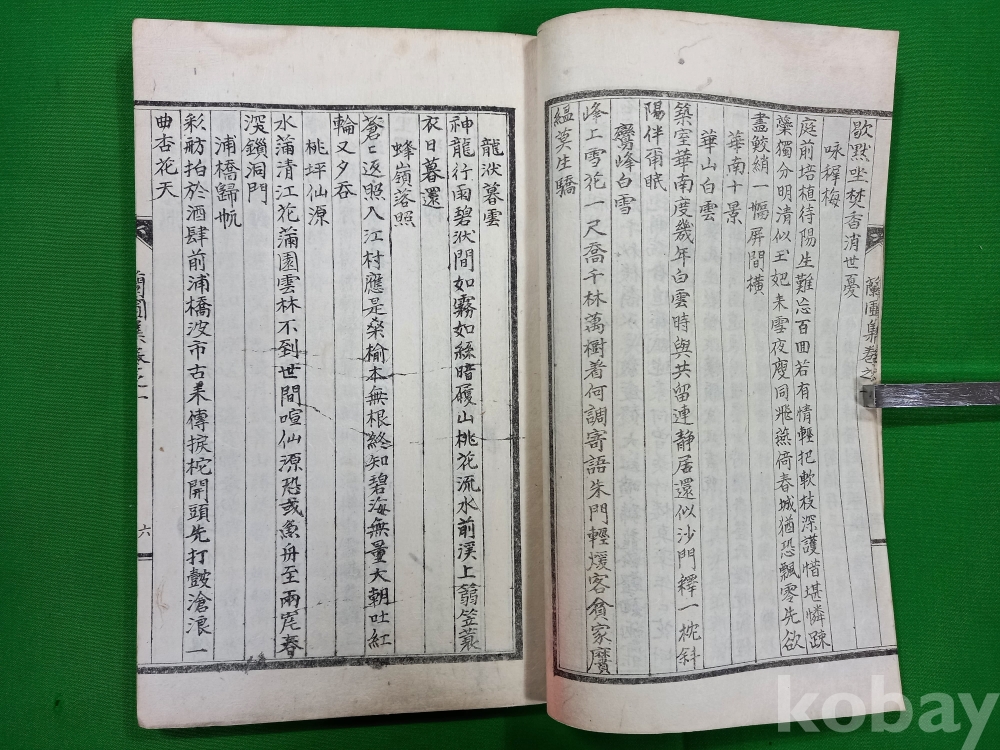 歇默坐焚香消世憂
詠稺梅
庭前培植待陽生難忘百回若有情輕把軟枝深護惜堪憐疎
橤獨分明清似王妃来雪夜瘦同飛燕倚春城猶恐飄零先欲
畫鮫綃一幅屏間橫
華南十景
華山白雲
築室華南度幾年白雲時與共留連静居還似沙門釋一枕斜
陽伴爾眠
鸞峰白雪
峰上雪花一尺喬千林萬樹着何調寄語朱門輕煖客貧家縻
縕莫生驕
龍洑暮雲
神龍行雨碧洑間如霧如絲暗履山桃花流水前溪上蒻笠蓑
衣日暮還
蜂嶺落照
蒼〻返照入江村應是桑榆本無根終知碧海無量大朝吐紅
輪又夕吞
桃坪仙源
水蒲清江花蒲園雲林不到世間喧仙源恐或魚舟至兩岸春
深鎖洞門
浦橋歸帆
彩舫拍於酒肆前浦橋波市古来傳捩柁開頭先打皷滄浪一
曲杏花天
蘭圃集卷之一
六
kobay